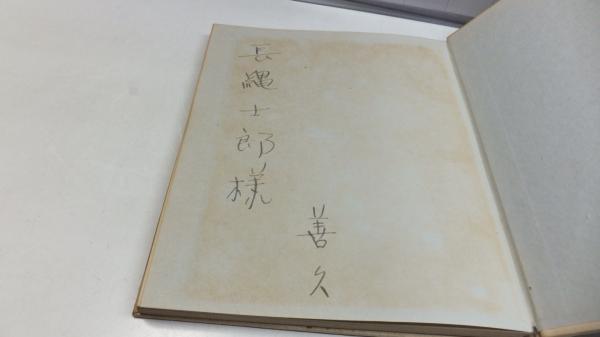 長縄士郎様
善久